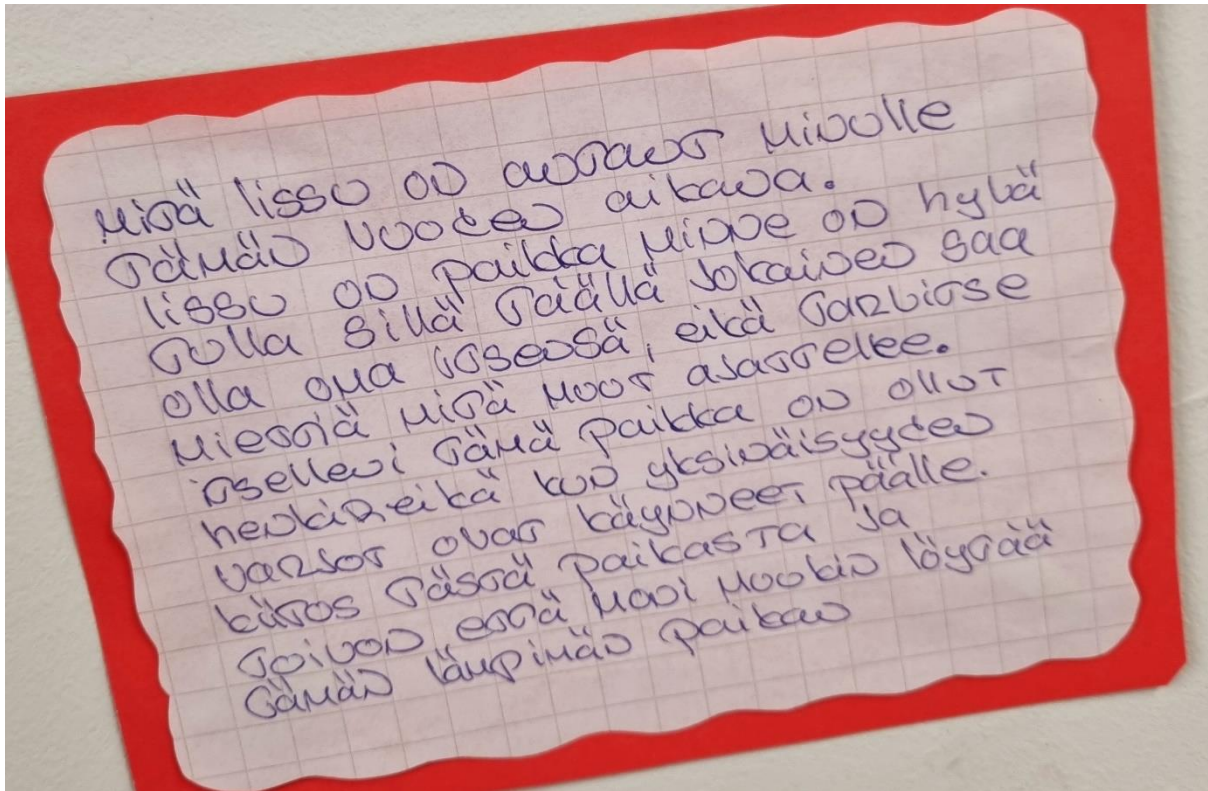 Mitä lissu on antanut minulle
tämän vuoden aikana.
lissu on paikka minne on hyvä
tulla sillä täällä jokainen saa
olla oma itsensä, eikä tarvitse
miettiä mitä muut ajattelee.
itselleni tämä paikka on ollut
henkireikä kun yksinäisyyden
varjot ovat käynneet päälle.
kiitos tästä paikasta ja
toivon että moni muukin löytää
tämän lämpimän paikan